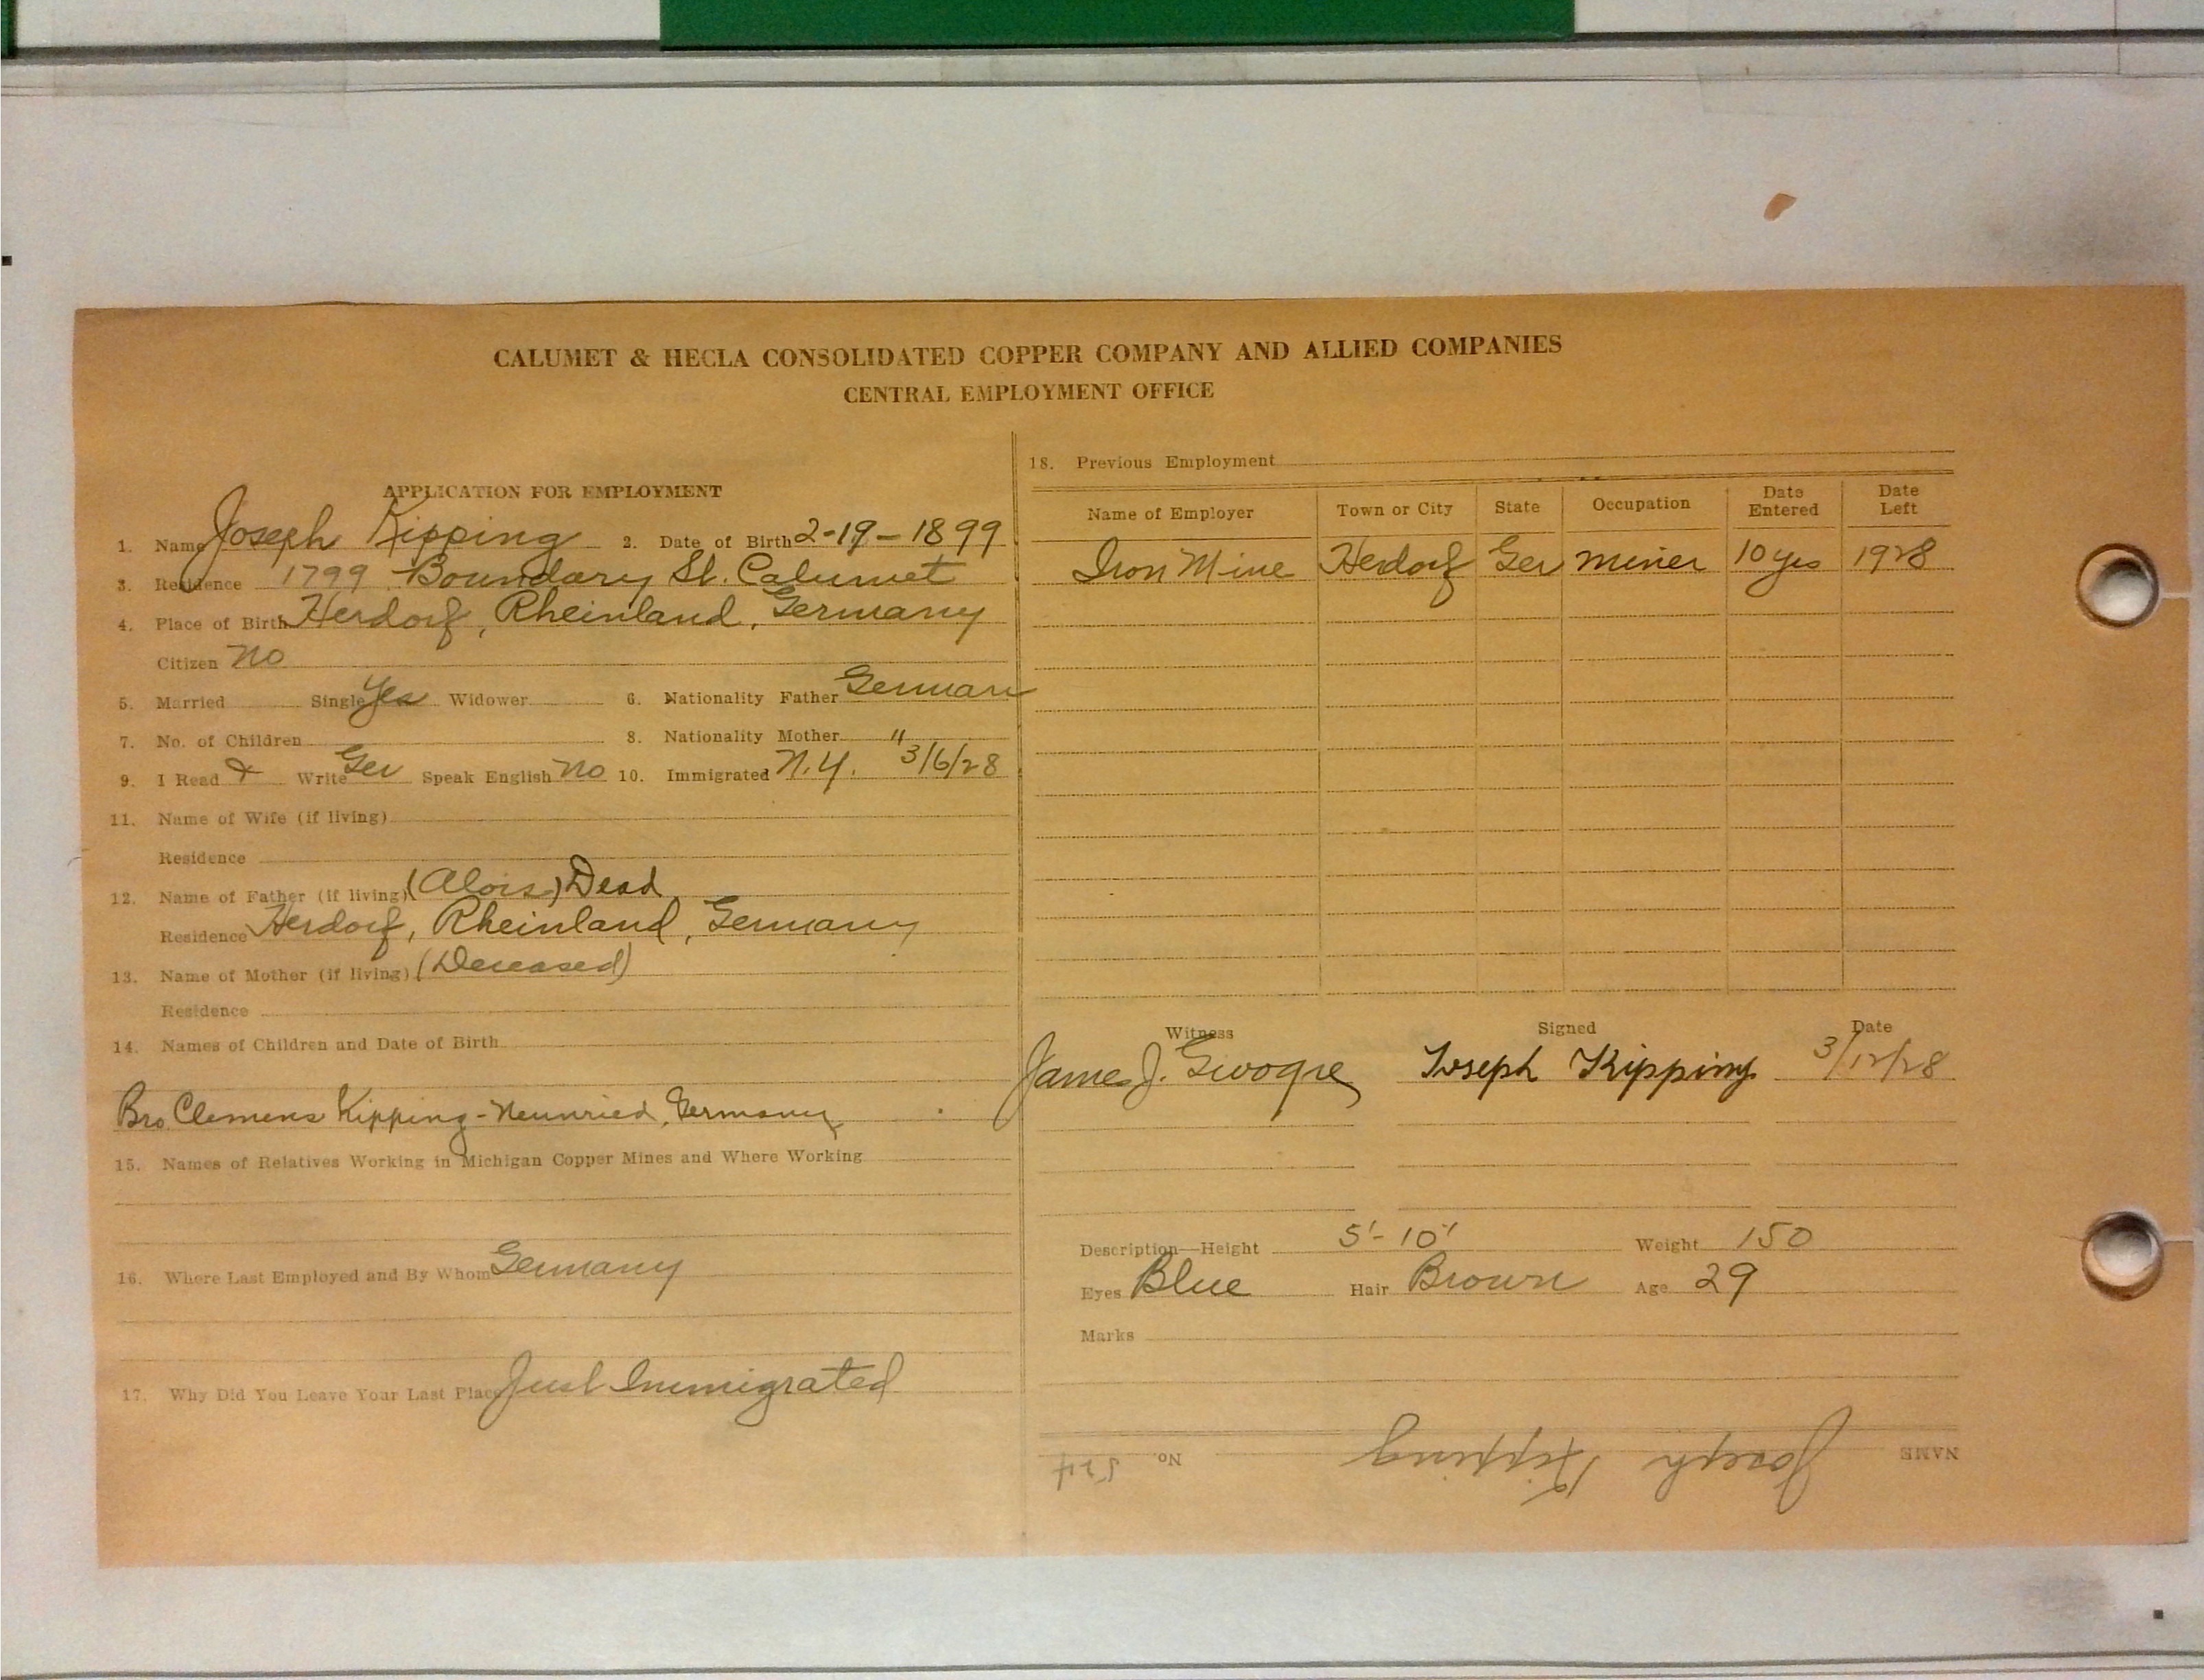 CALUMET & HECLA CONSOLIDATED COPPER COMPANY AND ALLIED COMPANIES
CENTRAL EMPLOYMENT OFFICE
APPLICATION FOR EMPLOYMENT
1. Name Joseph Kipping 2. Date of Birth 2-19-1899
3. Residence 1799 Boundary St. Calumet
4. Place of Birth Herdorf, Rheinland, Germany
Citizen No
5. Married Single Yes Widower 6. Nationality Father German
7. No. of Children 8. Nationality Mother "
9. I Read & Write Ger Speak English No 10. Immigrated N.Y. 3/6/28
11. Name of Wife (if living)
Residence
12. Name of Father (if living) (Alois) Dead
Residence Herdorf, Rheinland, Germany
13. Name of Mother (if living) (Deceased)
Residence
14. Names of Children and Date of Birth
Bro Clemens Kipping - Germany
15. Names of Relatives Working in Michigan Copper Mines and Where Working
16. Where Last Employed and By Whom Germany
17. Why Did You Leave Your Last Place Just Immigrated
18. Previous Employment
Name of Employer Town or City State Occupation Date Entered Date Left
Iron Mine Herdorf Ger Miner 10 yrs 1928
Witness Signed Date
James J. Joseph Kipping 3/12/28
Description—Height 5'-10" Weight 150
Eyes Blue Hair Brown Age 29
Marks
NAME Joseph Kipping No. 524